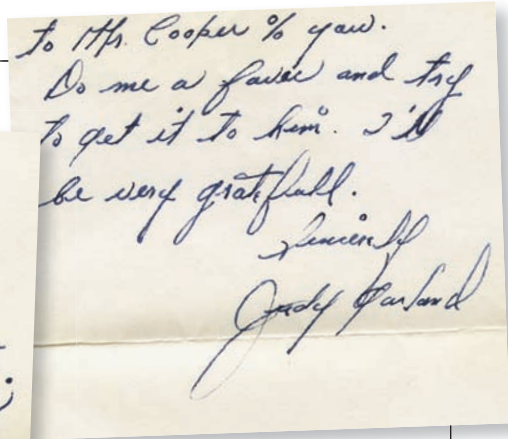 to Mr. Cooper % you.
Do me a favor and try
to get it to him. I'll
be very gratefull.
Sincerely
Judy Garland